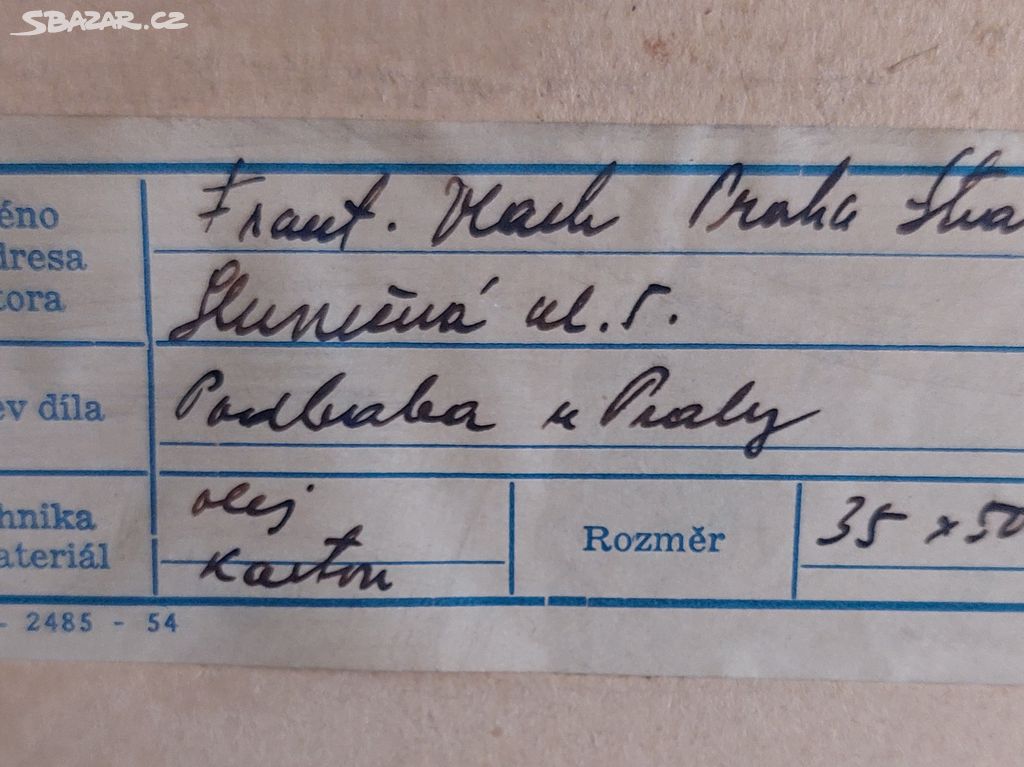 SBAZAR.CZ
éno Frant. Vlach Praha
dresa
tora Slunečná ul. 5.
ev díla Podbaba u Prahy
hnika olej Rozměr 35 x 50
ateriál karton
- 2485 - 54